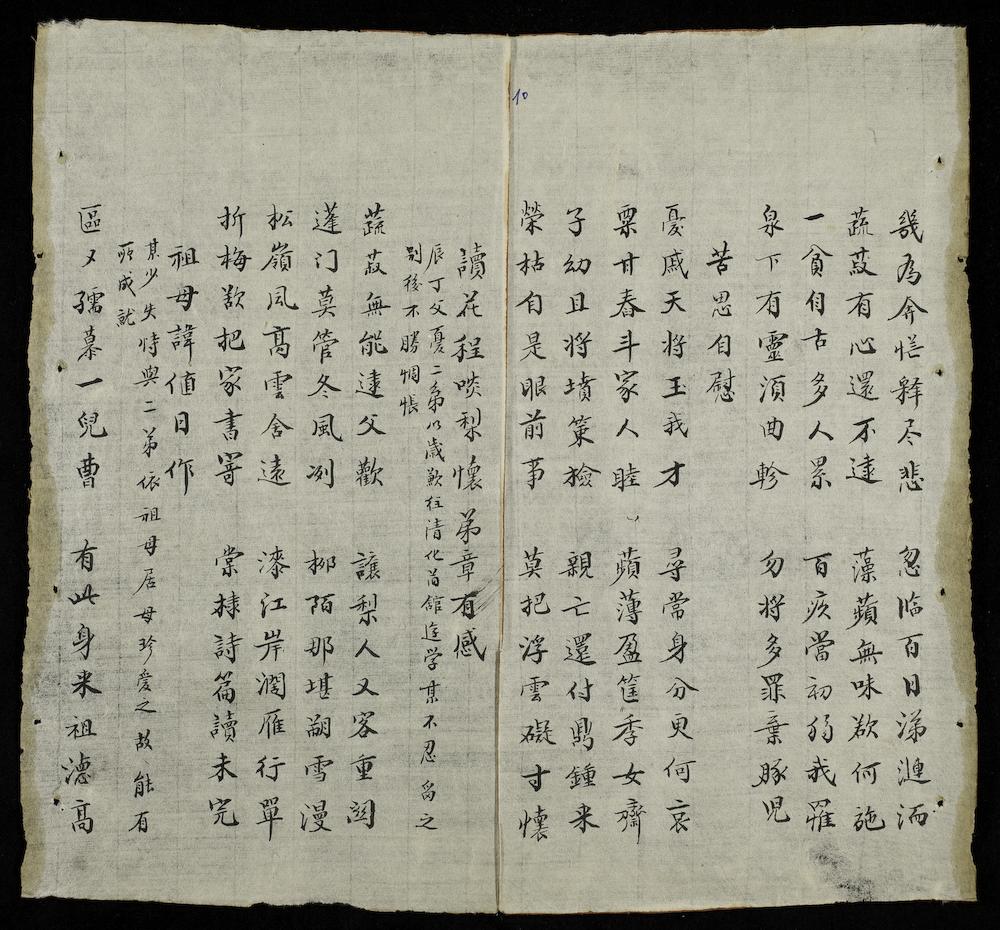 幾為弁㤀釋尽悲　忽臨百日涕漣洏
蔬菽有心還不逮　藻蘋無味欲何施
一貧自古多人累　百疚當初弱我罹
泉下有靈須曲軫　勿将多罪棄豚児
苦思自慰
憂戚天將玉我才　尋常身分更何哀
粟甘舂斗家人睦　蘋薄盈筐季女齊
子幼且将墳策檢　親亡還付鼎鍾来
榮枯自是眼前事　莫把浮雲礙寸懷
10
讀花程啖梨懷弟章有感
辰丁父憂二弟以歲歉往清化省館遊学某不忍留之
别後不勝惆悵
蔬菽無能逮父歡　讓梨人又客重関
蓬门莫管冬風冽　柳陌那堪朔雪漫
松嶺風高雲舍遠　漆江岸濶雁行單
折梅歎把家書寄　棠棣詩篇讀未完
祖母諱值日作
某少失恃與二弟依祖母居母珍愛之故能有
所成就
區々孺慕一兒曹　有此身来祖德高